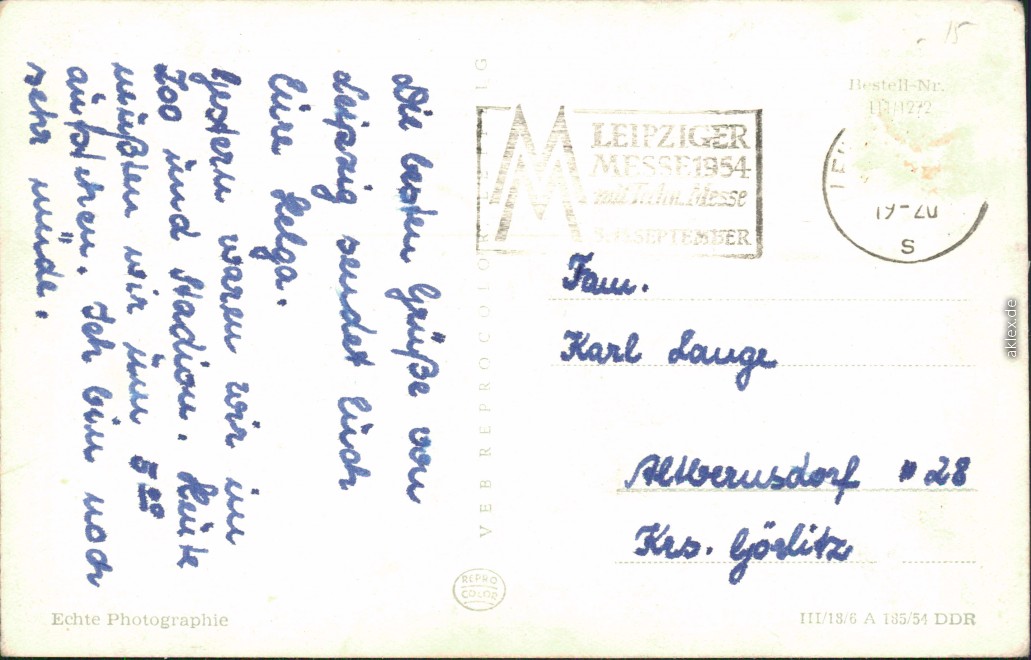 Die besten Grüße von
Leipzig sendet Euch
Eure Helga.
Gestern waren wir im
Zoo und Stadion. Heute
mußten wir um 5⁰⁰
aufstehen. Ich bin noch
sehr müde.
VEB REPROCOLOR LEIPZIG
REPRO
COLOR
Echte Photographie
15
Bestell-Nr.
LEIPZIGER
MESSE 1954
mit Techn. Messe
SEPTEMBER
S
Fam.
Karl Lange
Altbernsdorf 28
Krs. Görlitz
III/18/6 A 185/54 DDR
aklex.de